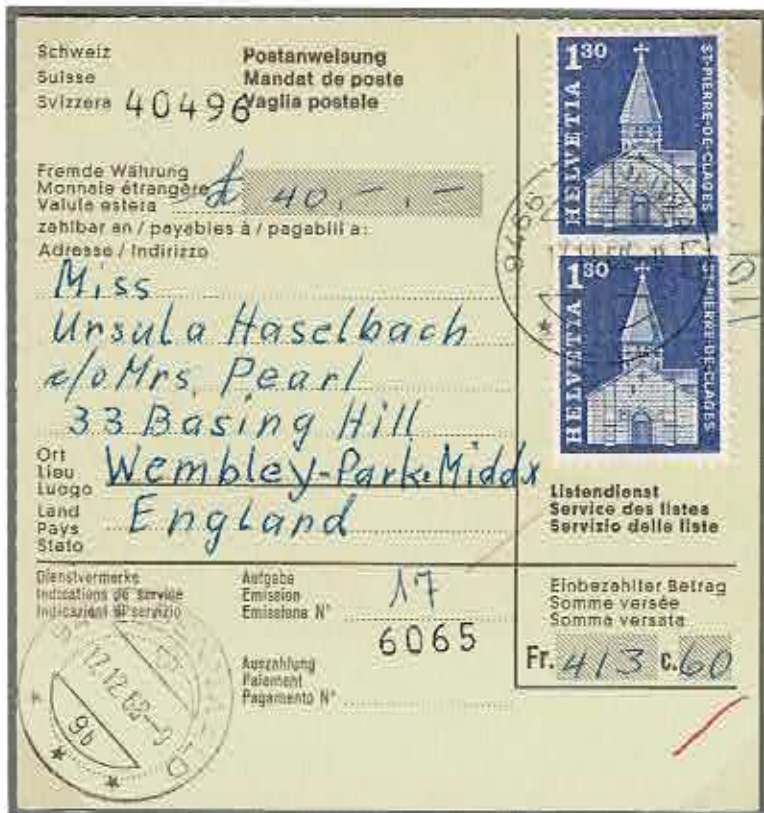 Schweiz
Suisse
Svizzera 40496
Postanweisung
Mandat de poste
Vaglia postale
Fremde Währung
Monnaie étrangère
Valuta estera £ 40,-,-
zahlbar an / payables à / pagabili a:
Adresse / Indirizzo
Miss
Ursula Haselbach
c/o Mrs. Pearl
33 Basing Hill
Ort
Lieu
Luogo
Wembley-Park. Middx
Land
Pays
Stato
England
1 30
HELVETIA
ST-PIERRE-DE-CLAGES
9466
1 30
HELVETIA
ST-PIERRE-DE-CLAGES
Listendienst
Service des listes
Servizio delle liste
Dienstvermerke
Indications de service
Indicazioni di servizio
Aufgabe
Emission
Emissione N°
17
6065
Auszahlung
Paiement
Pagamento N°
Einbezahlter Betrag
Somme versée
Somma versata
Fr. 413 c. 60
12.12.68-9
9b